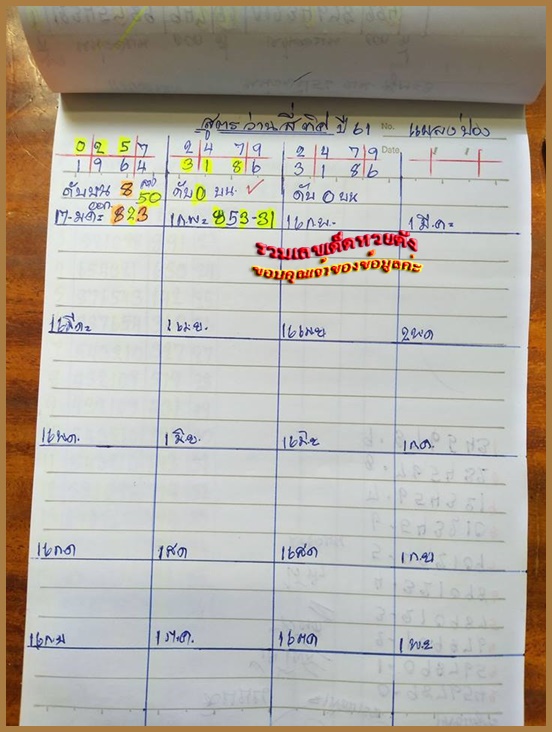 สูตรว่านสี่ทิศ ปี 61 No. แมลงป่อง
Date
0 2 5 7
1 9 6 4
2 4 7 9
3 1 8 6
2 4 7 9
3 1 8 6
ดับบน 8 50
ออก
17-มค= 823
ดับ 0 บน ✓
1 กพ= 853-31
ดับ 0 บน
16 กพ.
1 มีค=
รวมเลขเด็ดหวยดัง
ขอบคุณเจ้าของข้อมูลค่ะ
16 มีค= 1 เมย. 16 เมย 2 พค
16 พค. 1 มิย. 16 มิย 1 กค.
16 กค 1 สค 16 สค 1 กย
16 กย 1 ต.ค. 16 ตค 1 พย